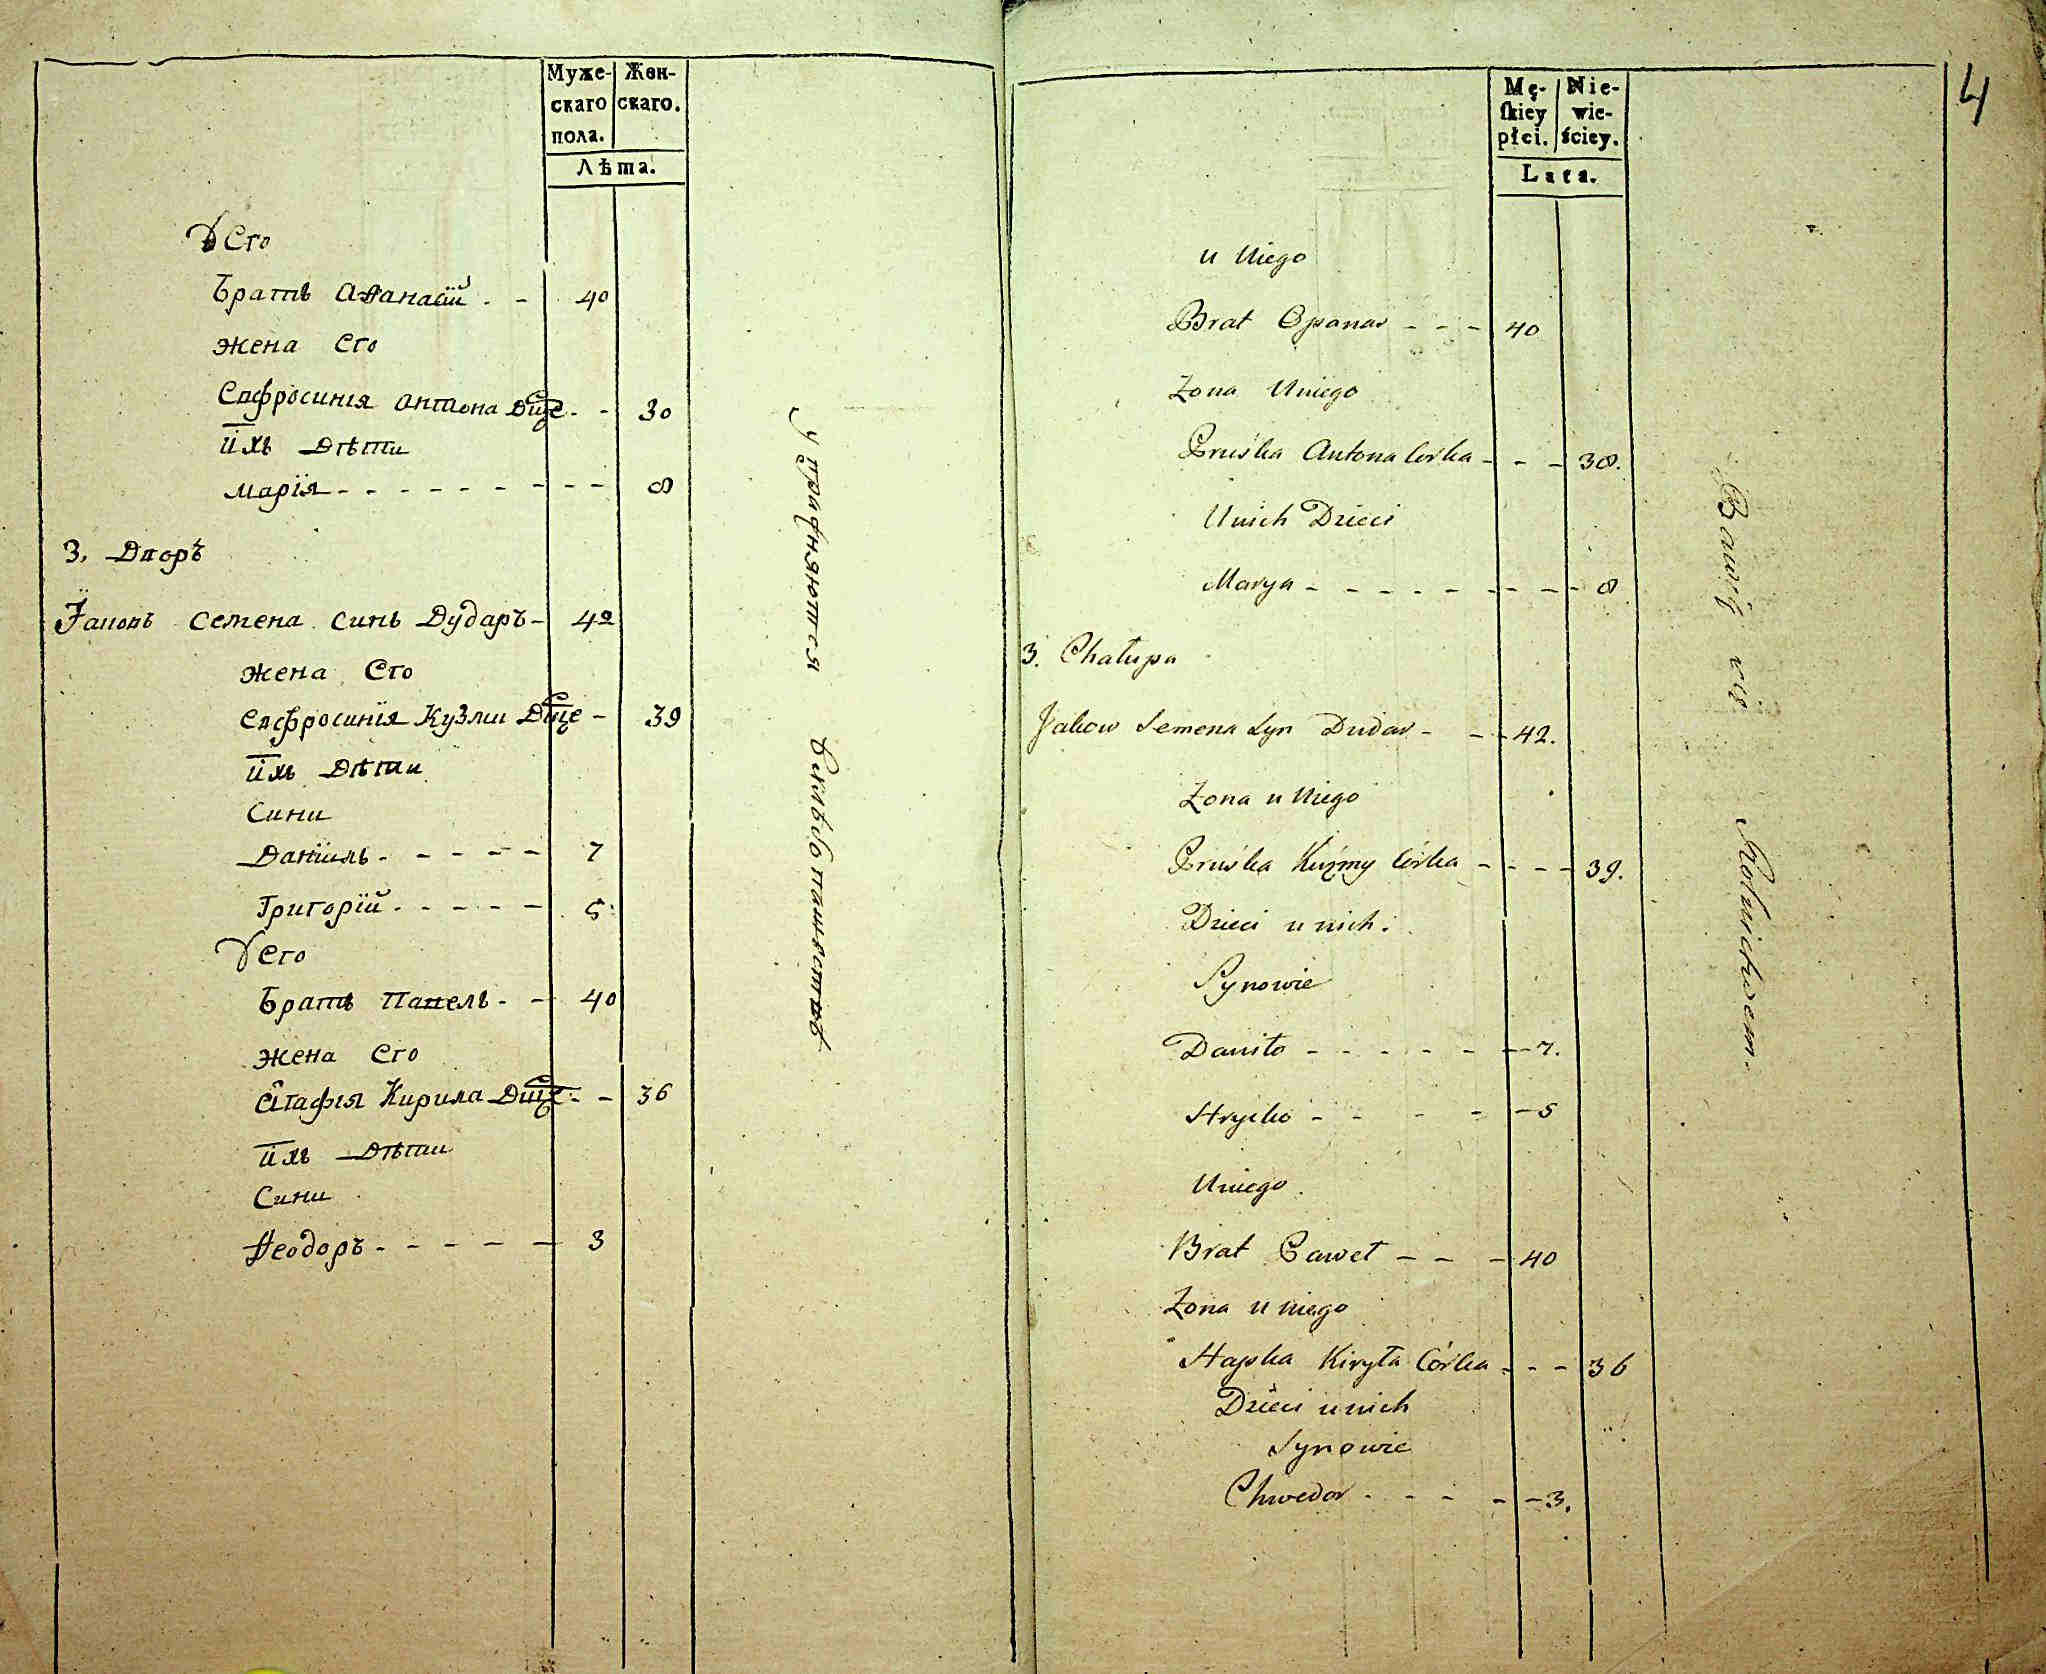 Муже-
скаго
пола.
Жен-
скаго.
Лѣта.
У Его
Братъ Аѳанасій - - 40
жена Его
Евфросинія Антона Дщ҃е - - 30
ихъ Дѣти
Марія - - - - - - - - - 8
3. Дворъ
Іаковъ Семена Синъ Дударъ - 42
жена Его
Евфросинія Кузми Дщ҃е - 39
ихъ Дѣти
Сини
Даніилъ - - - - - 7
Григорій - - - - - 5
У Его
Братъ Павелъ - - 40
жена Его
Агафія Кирила Дщ҃е - - 36
ихъ Дѣти
Сини
Ѳеодоръ - - - - - 3
Упражняются хлѣбопашествѣ
Mę-
skiey
płci.
Nie-
wie-
ściey.
Lata.
4
u Niego
Brat Opanas - - - 40
Żona Uniego
Pruśka Antona Corka - - - 30.
Unich Dzieci
Marya - - - - - - - - 8
3. Chałupa
Jakow Semena Syn Dudar - - - 42.
Żona u Niego
Pruśka Kuźmy Córka - - - - 39.
Dzieci u nich.
Synowie
Daniło - - - - - - - 7.
Hryćko - - - - - 5
Uniego
Brat Paweł - - - 40
Żona u niego
Hapka Kiryła Córka - - - 36
Dzieci u nich
Synowie
Chwedor - - - - - 3.
Bawią się Rolnictwem.